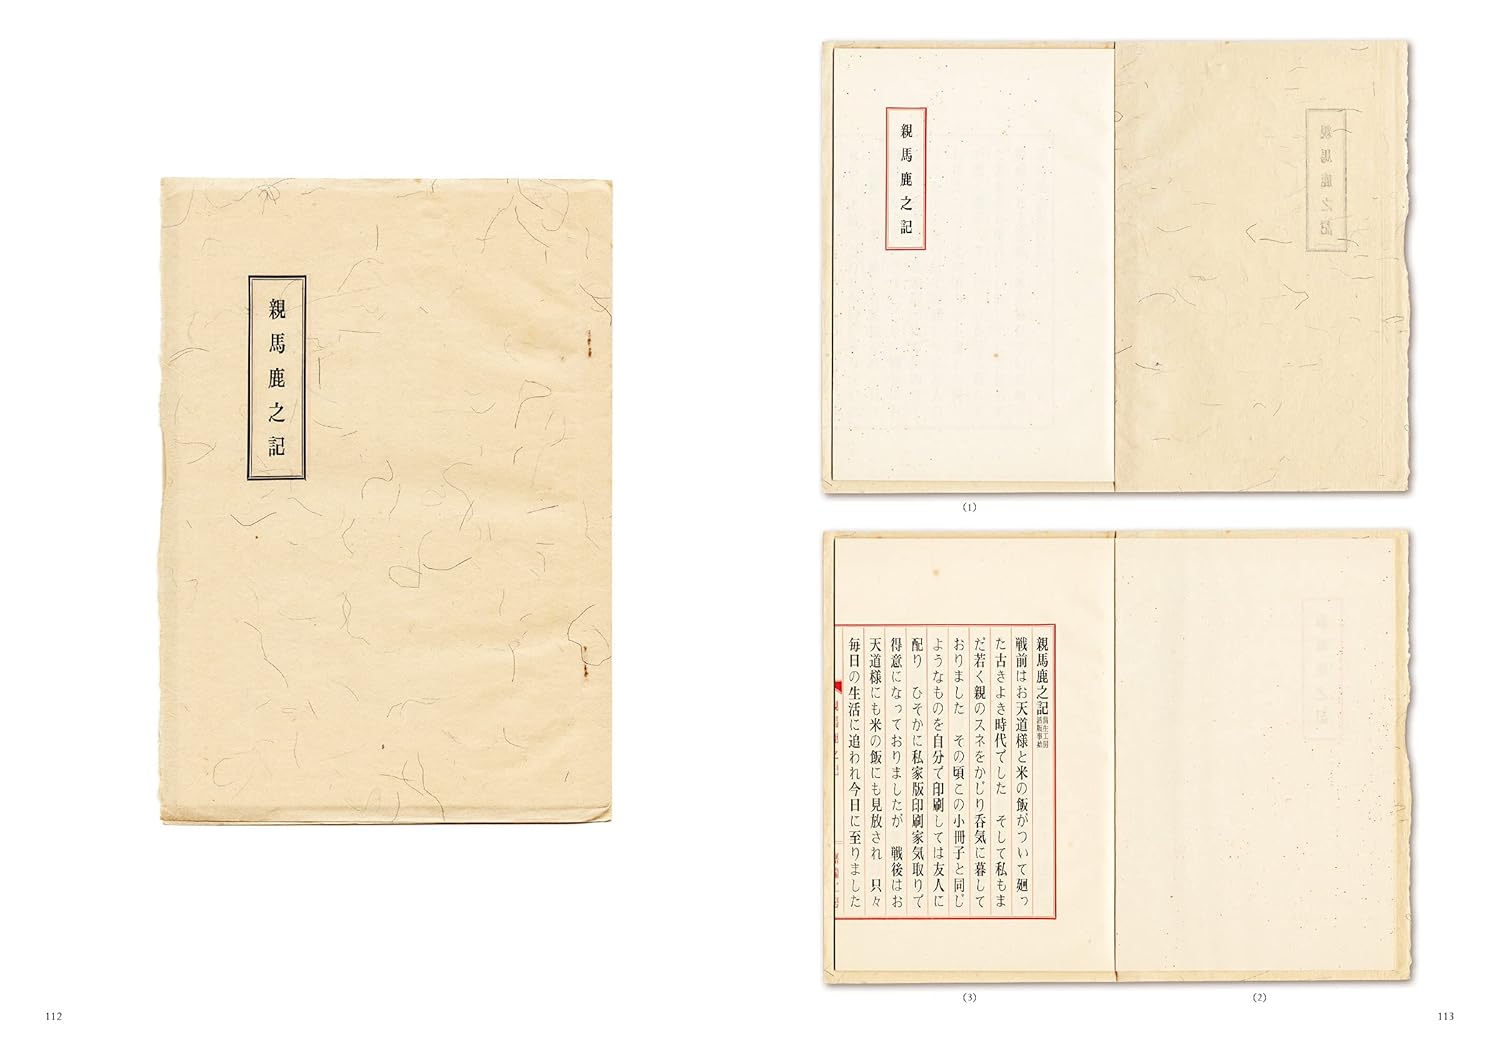 親馬鹿之記
112
親馬鹿之記
(1)
親馬鹿之記
戦前はお天道様と米の飯がついて廻っ
た古きよき時代でした　そして私もま
だ若く親のスネをかじり呑気に暮して
おりました　その頃この小冊子と同じ
ようなものを自分で印刷しては友人に
配り　ひそかに私家版印刷家気取りで
得意になっておりましたが　戦後はお
天道様にも米の飯にも見放され　只々
毎日の生活に追われ今日に至りました
(3)
(2)
113